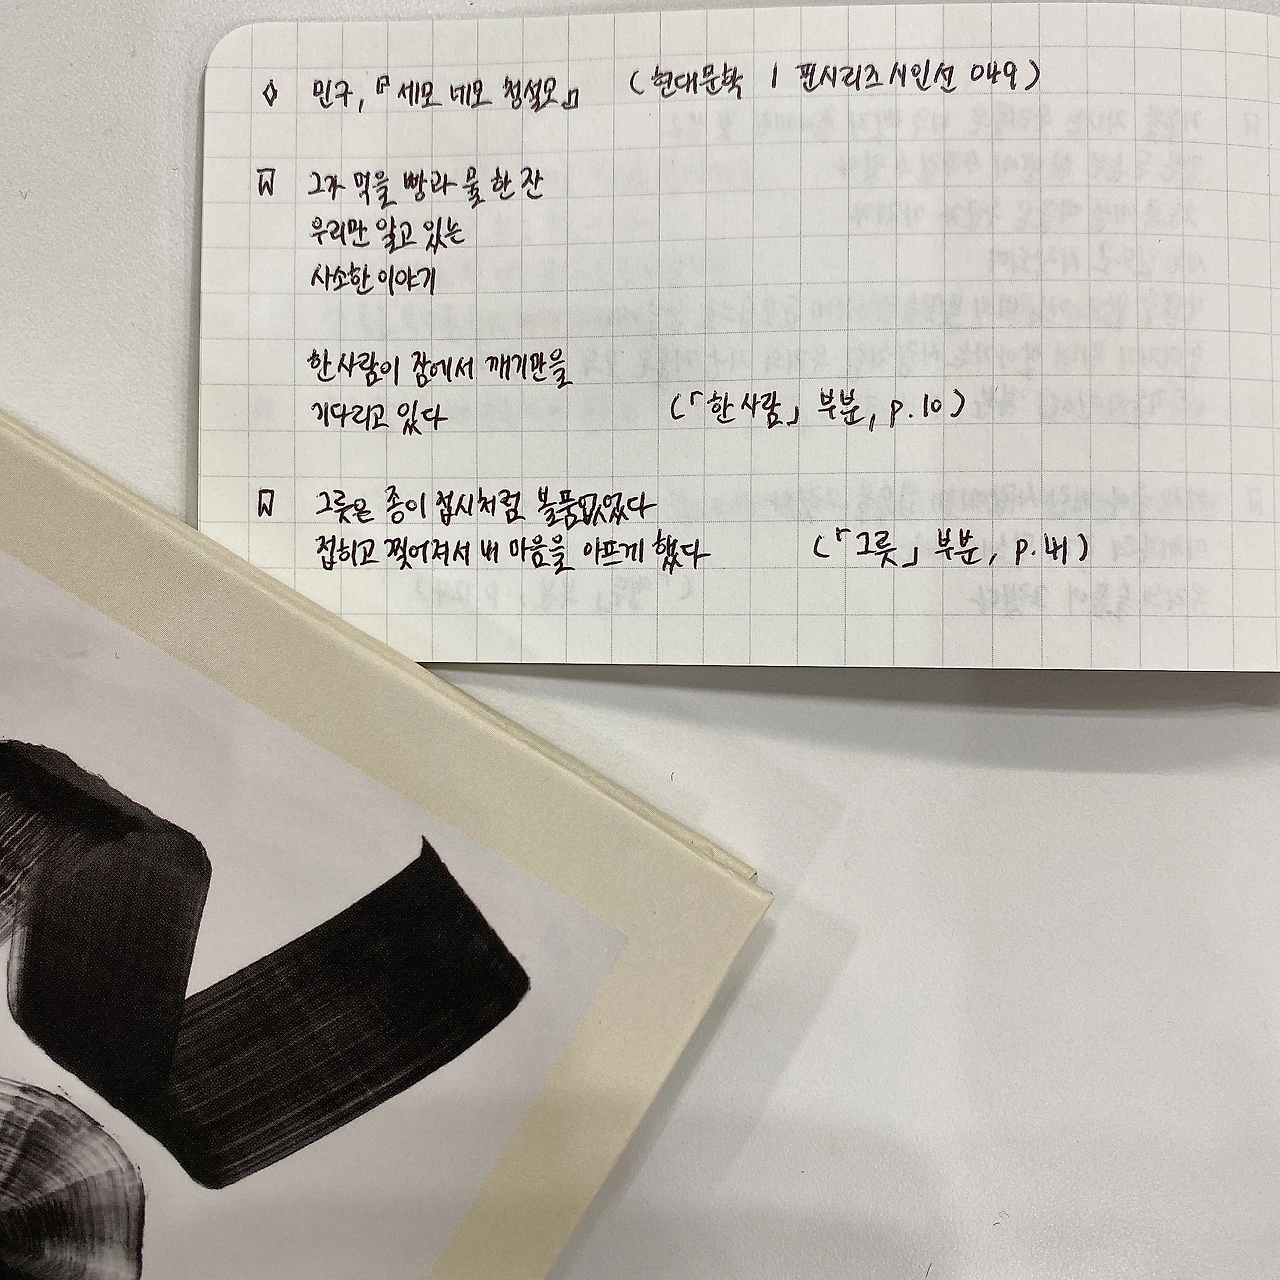 ◇ 민구, 『세모 네모 청설모』 (현대문학 | 핀시리즈 시인선 049)
그가 먹을 빵과 물 한 잔
우리만 알고 있는
사소한 이야기
한 사람이 잠에서 깨기만을
기다리고 있다 (「한 사람」 부분, p.10)
그릇은 종이 접시처럼 볼품없었다
접히고 찢어져서 내 마음을 아프게 했다 (「그릇」 부분, p.41)